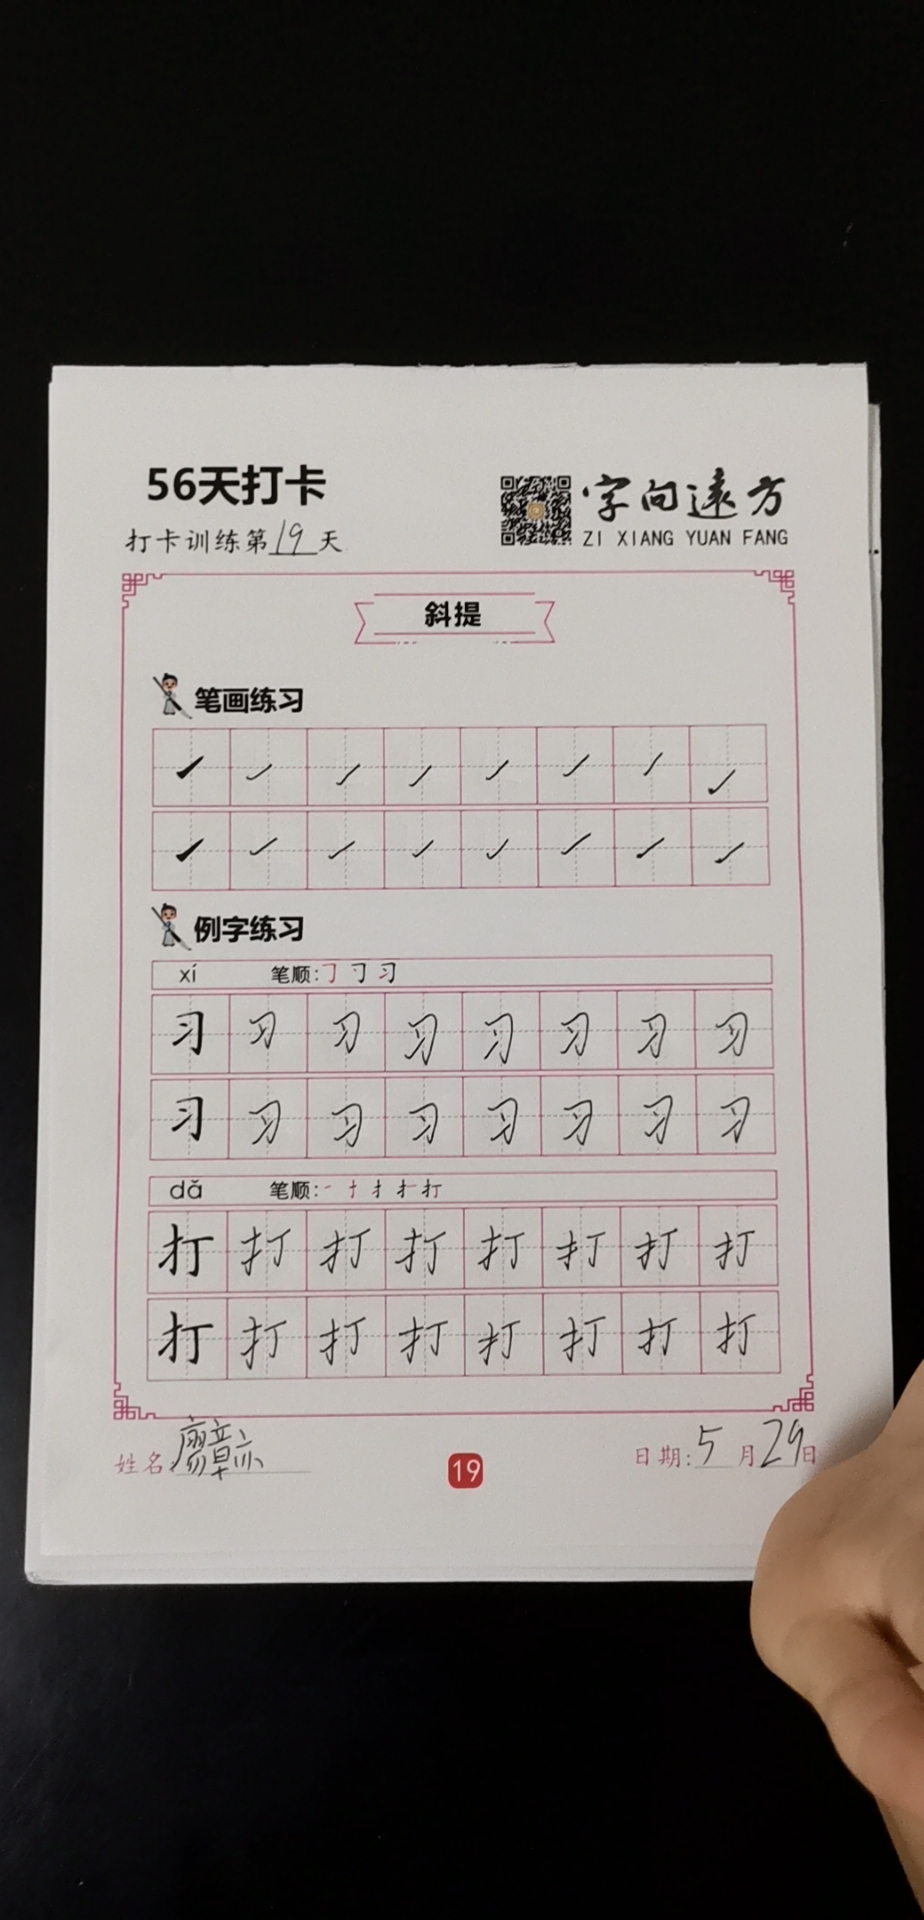 56天打卡
字向远方
打卡训练第19天
ZI XIANG YUAN FANG
斜提
笔画练习
例字练习
xí 笔顺:㇆ 刁 习
习 习 习 习 习 习 习 习
习 习 习 习 习 习 习 习
dǎ 笔顺:一 十 扌 扌 打
打 打 打 打 打 打 打 打
打 打 打 打 打 打 打 打
姓名
19
日期:5月29日